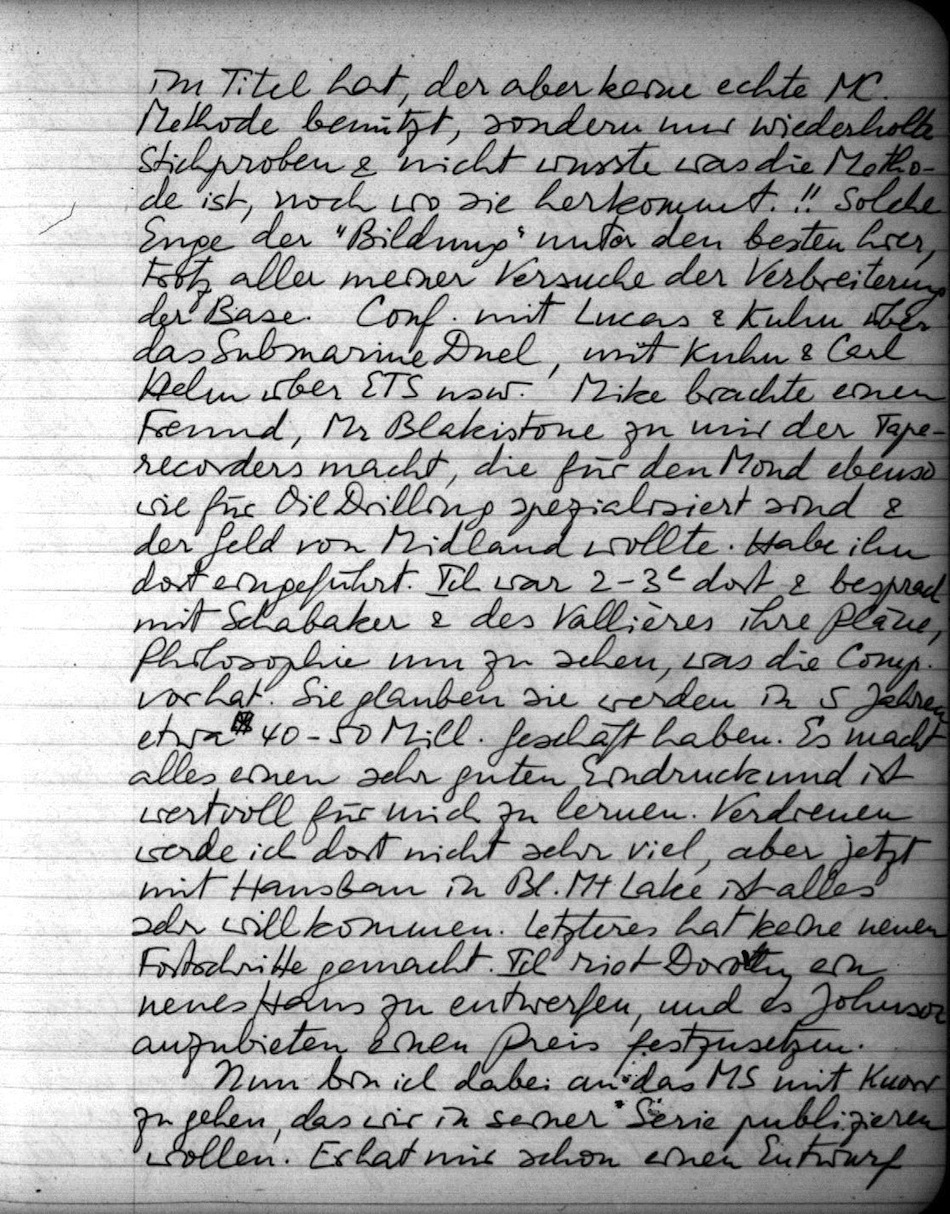 im Titel hat, der aber keine echte MC.
Methode benützt, sondern nur wiederholte
Stichproben & nicht wusste was die Metho-
de ist, noch wo sie herkommt. !! Solche
Enge der "Bildung" unter den besten hier,
trotz aller meiner Versuche der Verbreiterung
der Base. Conf. mit Lucas & Kuhn über
das Submarine Duel, mit Kuhn & Carl
Helm über ETS usw. Mike brachte einen
Freund, Mr Blakistone zu mir der Tape-
recorders macht, die für den Mond ebenso
wie für Oil Drilling spezialisiert sind &
der Geld von Midland wollte. Habe ihn
dort eingeführt. Ich war 2-3 dort & besprach
mit Schabaker & des Vallières ihre Pläne,
Philosophie um zu sehen, was die Comp.
vorhat. Sie glauben sie werden in 5 Jahren
etwa 40-50 Mill. Geschäft haben. Es macht
alles einen sehr guten Eindruck und ist
wertvoll für mich zu lernen. Verdienen
werde ich dort nicht sehr viel, aber jetzt
mit Hausbau in Bl. Mt Lake ist alles
sehr willkommen. Letzteres hat keine neuen
Fortschritte gemacht. Ich riet Dorothy ein
neues Haus zu entwerfen, und es Johnson
anzubieten einen Preis festzusetzen.
Nun bin ich dabei an das MS mit Knorr
zu gehen, das wir in seiner Serie publizieren
wollen. Er hat mir schon einen Entwurf